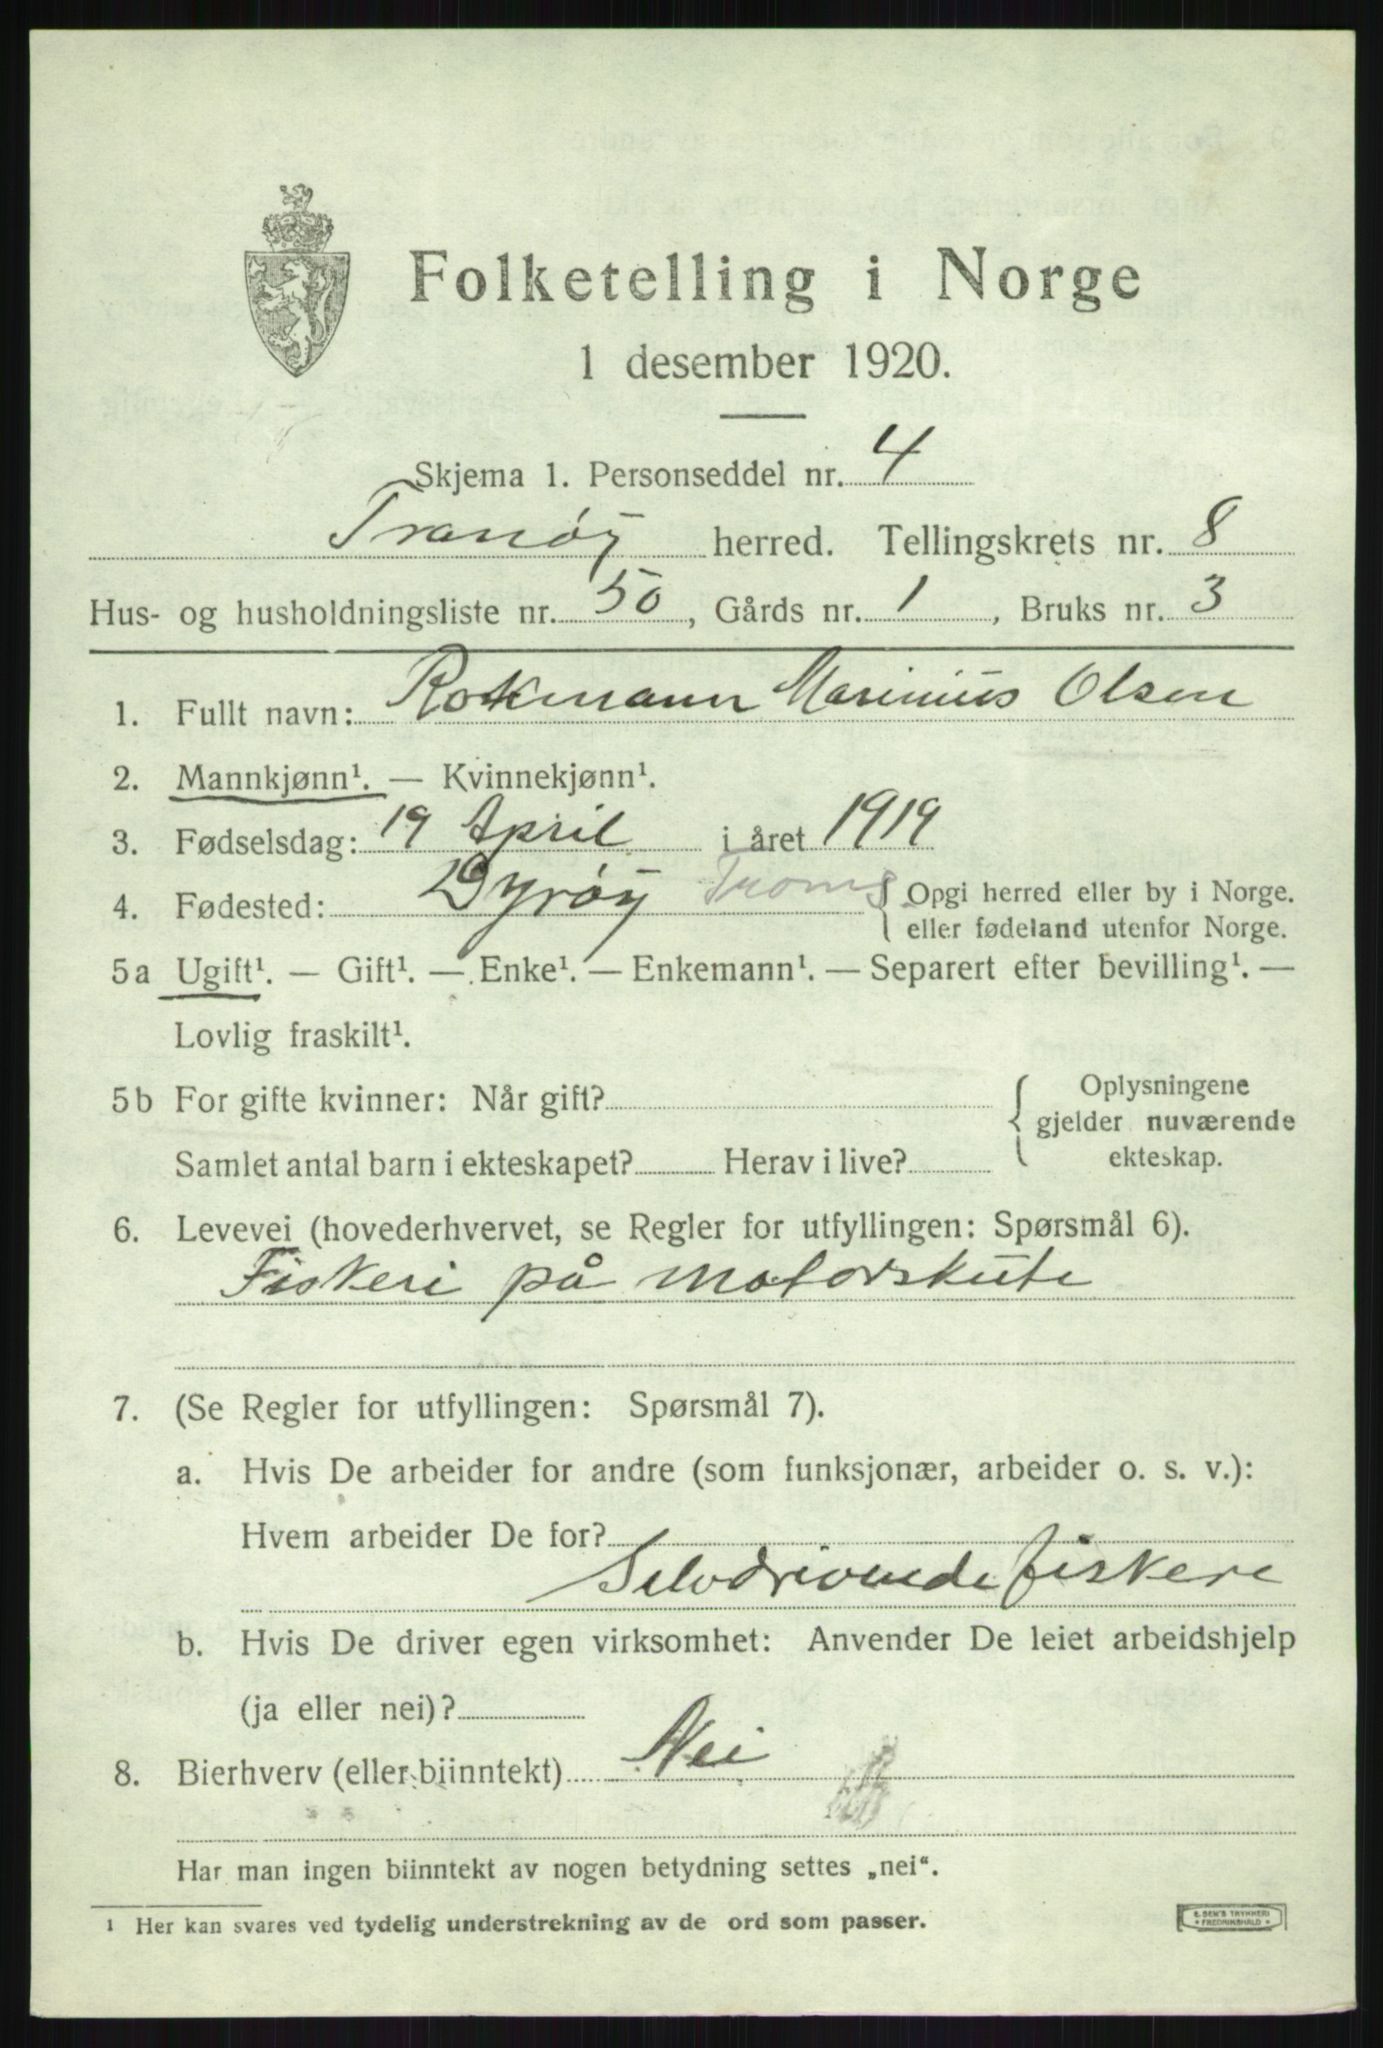 Folketelling i Norge
1 desember 1920.
Skjema 1. Personseddel nr. 4
Tranöy herred. Tellingskrets nr. 8
Hus- og husholdningsliste nr. 50, Gårds nr. 1, Bruks nr. 3
1. Fullt navn: Rokmann Marinius Olsen
2. Mannkjønn¹. — Kvinnekjønn¹.
3. Fødselsdag: 19 April i året 1919
4. Fødested: Dyröy Troms { Opgi herred eller by i Norge.
eller fødeland utenfor Norge.
5a Ugift¹. — Gift¹. — Enke¹. — Enkemann¹. — Separert efter bevilling¹. —
Lovlig fraskilt¹.
5b For gifte kvinner: Når gift? { Oplysningene
gjelder nuværende
Samlet antal barn i ekteskapet? Herav i live? ekteskap.
6. Levevei (hovederhvervet, se Regler for utfyllingen: Spørsmål 6).
Fiskeri på motorskute
7. (Se Regler for utfyllingen: Spørsmål 7).
a. Hvis De arbeider for andre (som funksjonær, arbeider o. s. v.):
Hvem arbeider De for?
Selvdrivende fiskere
b. Hvis De driver egen virksomhet: Anvender De leiet arbeidshjelp
(ja eller nei)?
8. Bierhverv (eller biinntekt) Nei
Har man ingen biinntekt av nogen betydning settes „nei“.
¹ Her kan svares ved tydelig understrekning av de ord som passer.
E. SEM'S TRYKKERI
• FREDRIKSHALD •